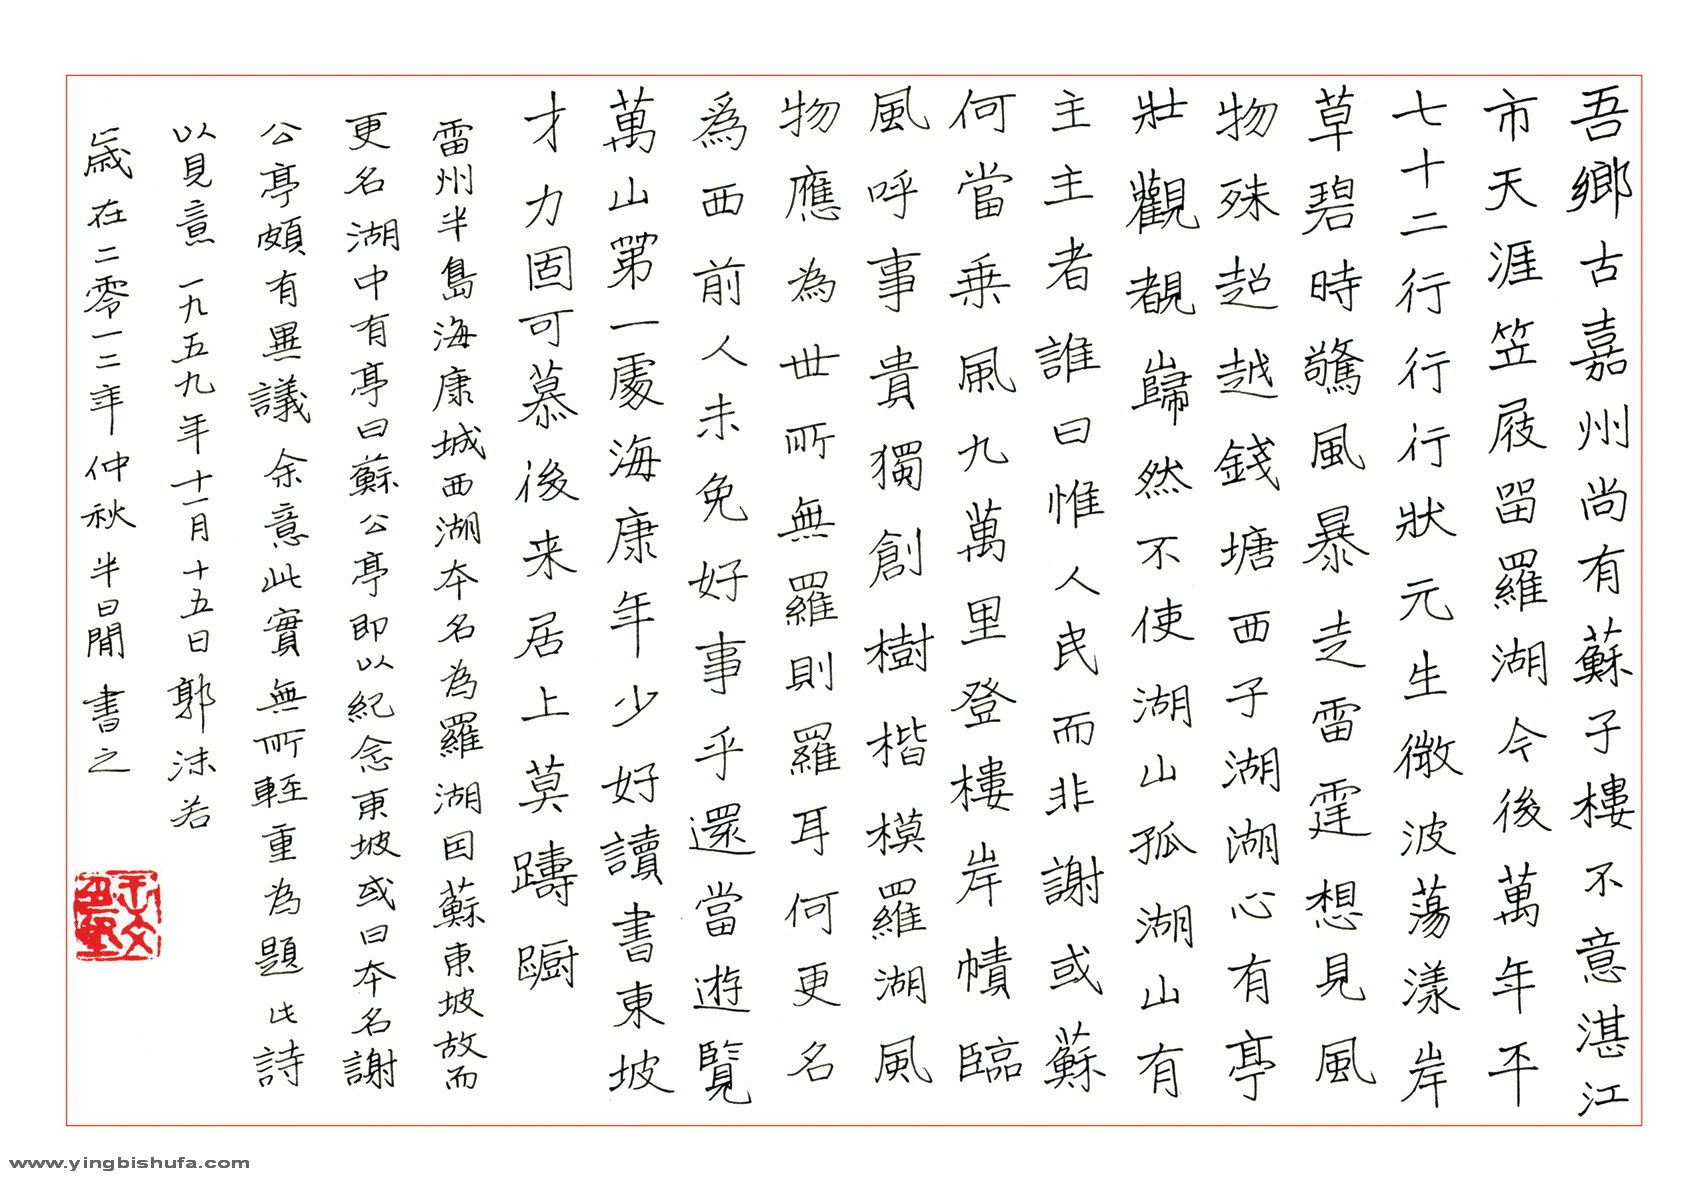 吾鄉古嘉州尚有蘇子樓不意湛江
市天涯笠屐留羅湖今後萬年平
七十二行行行狀元生微波蕩漾岸
草碧時驚風暴走雷霆想見風
物殊超越錢塘西子湖湖心有亭
壯觀覩巋然不使湖山孤湖山有
主主者誰曰惟人民而非謝或蘇
何當乗風九萬里登樓岸幘臨
風呼事貴獨創樹楷模羅湖風
物應為世所無羅則羅耳何更名
爲西前人未免好事乎還當遊覽
萬山第一處海康年少好讀書東坡
才力固可慕後来居上莫躊躕
雷州半島海康城西湖本名為羅湖因蘇東坡故而
更名湖中有亭曰蘇公亭即以紀念東坡或曰本名謝
公亭頗有異議余意此實無所輊重為題此詩
以見意一九五九年十一月十五日郭沫若
歲在二零一二年仲秋半日閒書之
www.yingbishufa.com